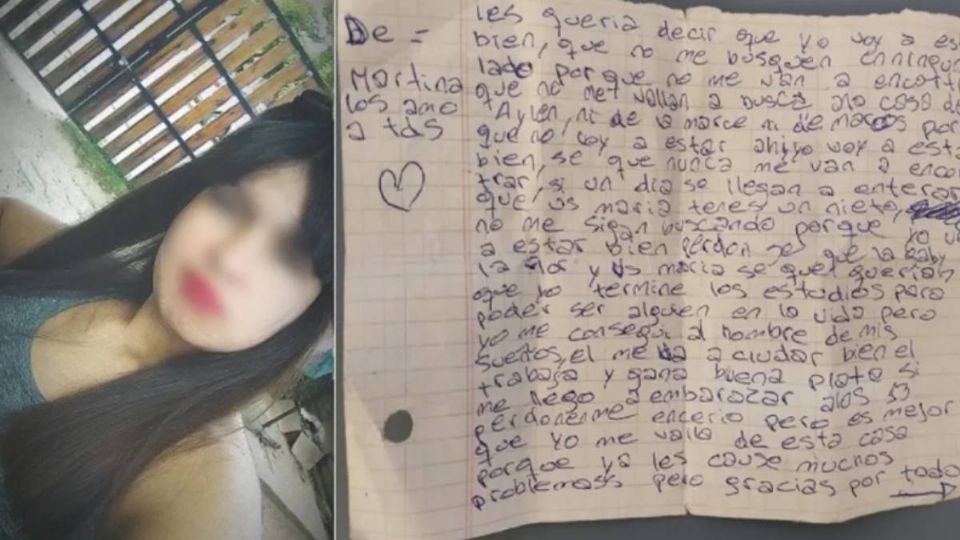 De =
Martina
los amo
a tds
les queria decir que yo voy a es
bien, que no me busquen enningun
lado porque no me van a encott
que no me vallan a busca ala casa de
Aylen, ni de la marce ni de marcos por
que no voy a estar ahiyo voy a esta
bien, se que nunca me van a enco
trar, si un dia se llegan a enterar
que, vs maria tenes un nieto,
no me sigan buscando porque yo v
a estar bien perdon se que la gaby
la flor y vs maria se que querian
que yo termine los estudios para
poder ser alguien en la vida pero
yo me consegui al hombre de mis
sueños, el me va a ciudar bien el
trabaja y gana buena plata si
me llego a embarazar alos 13
perdonenme encerio pero es mejor
que yo me valla de esta casa
porque ya les cause muchos
problemass pero gracias por todo